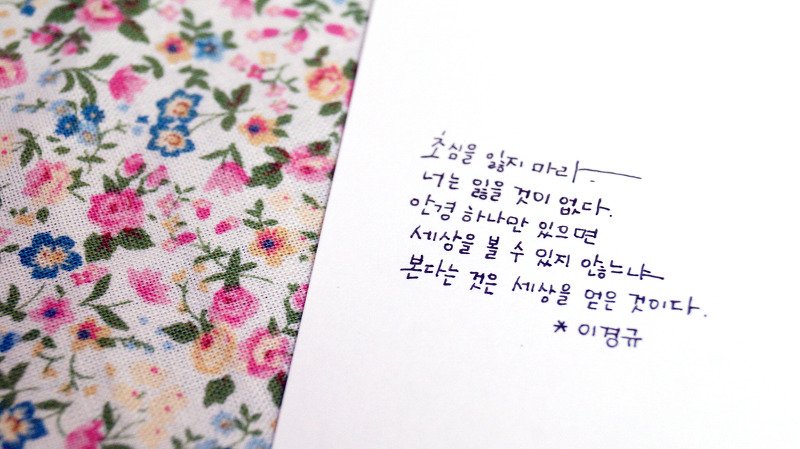 초심을 잃지 마라.
너는 잃을 것이 없다.
안경 하나만 있으면
세상을 볼 수 있지 않느냐
본다는 것은 세상을 얻은 것이다.
* 이경규